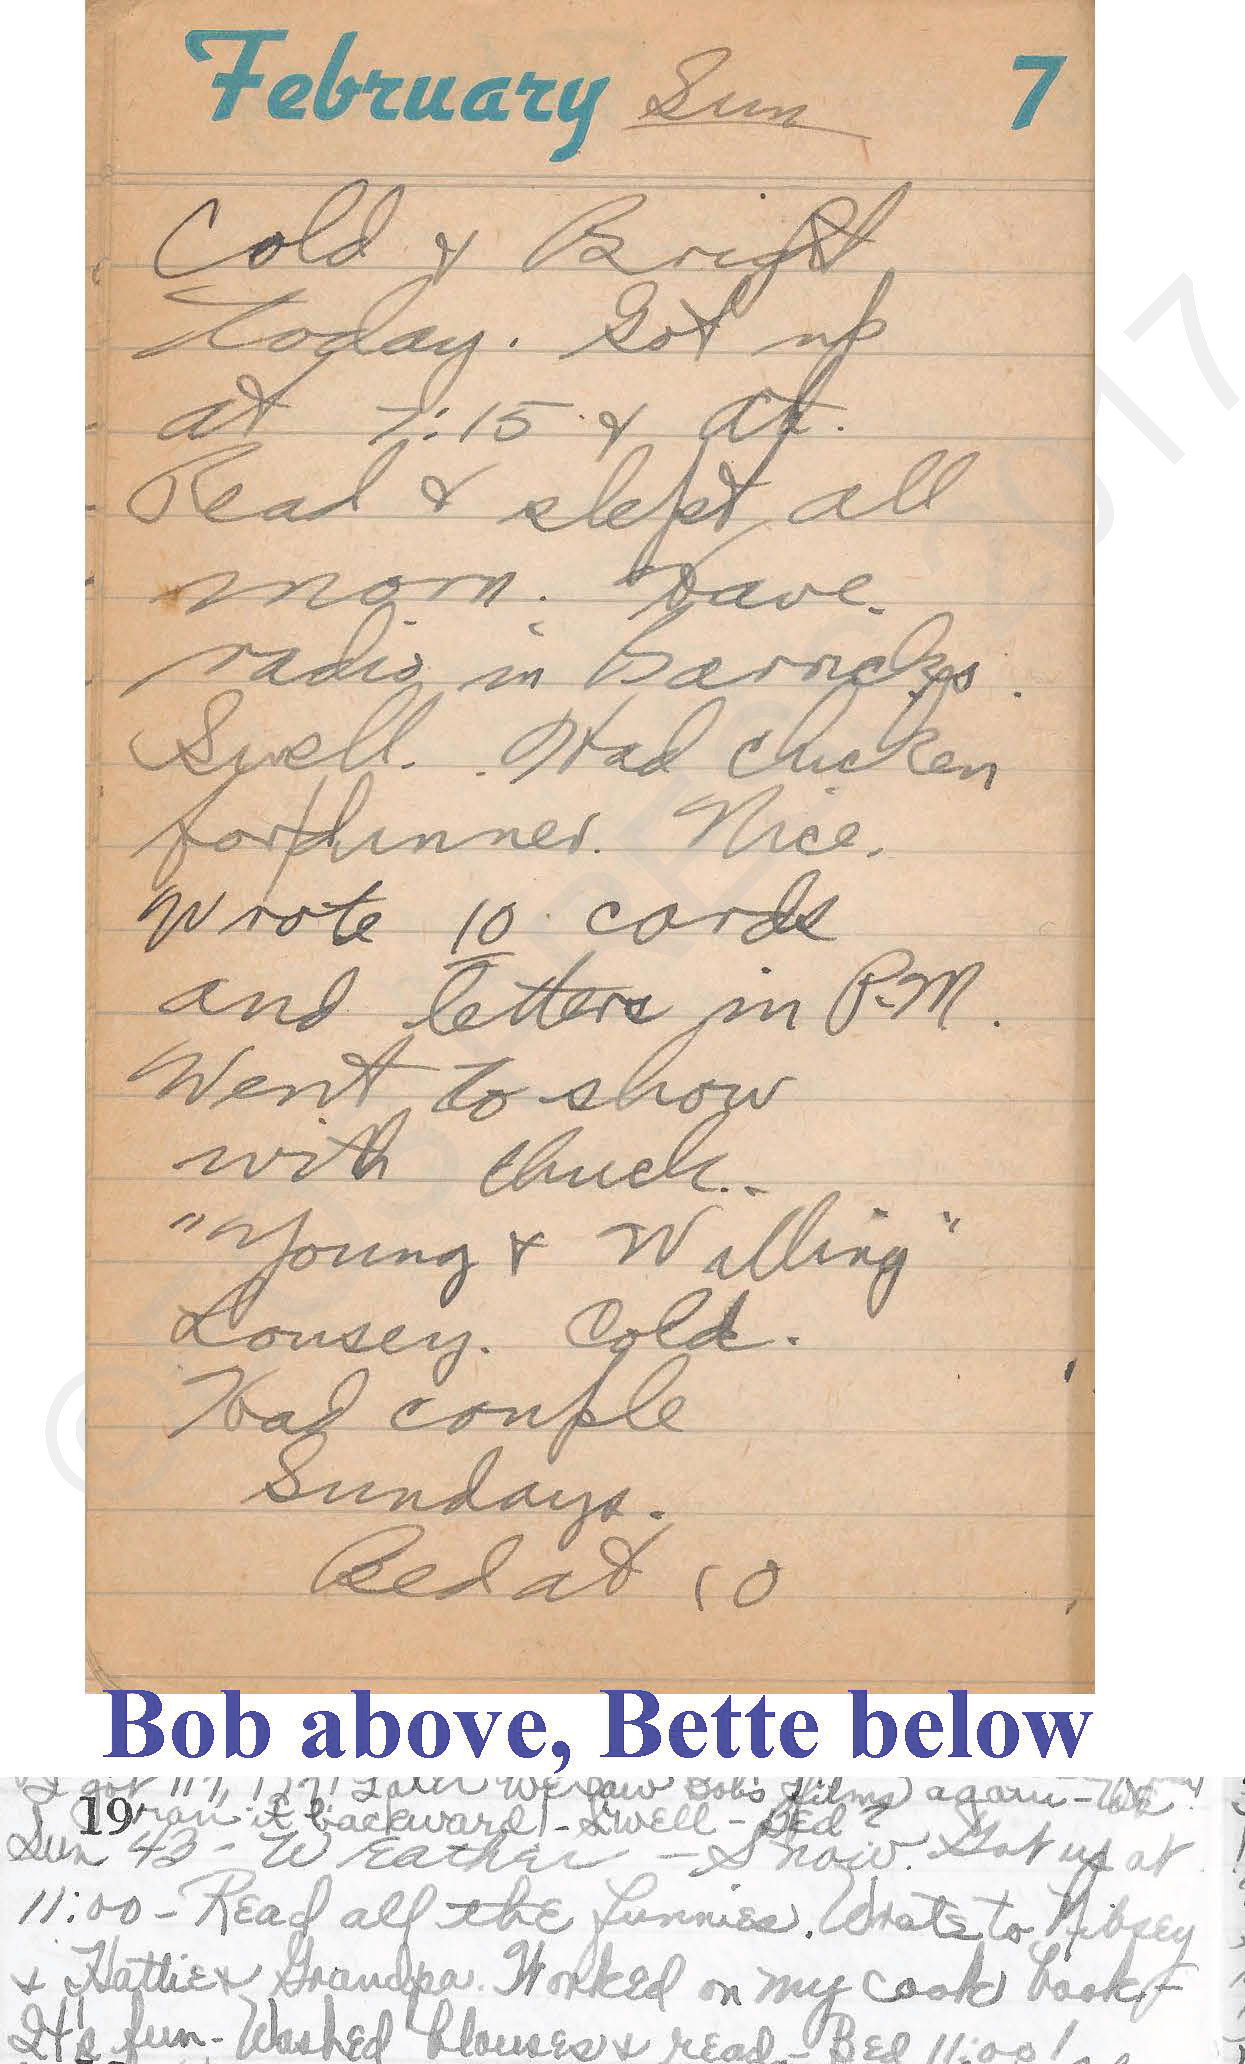 February Sun 7
Cold & Bright
Today. Got up
at 7:15 & at.
Read & slept all
morn. Have
radio in barricks.
Swell. Had chicken
for dinner. Nice.
Wrote 10 cards
and letters in P.M.
Went to show
with Chuck..
"Young & Willing"
Lousey. Cold.
Had couple
Sundays.
Bed at 10
Bob above, Bette below
Later We saw Bob's films again - We
19 ran it backward - Swell - Bed
Sun 43 - Weather - Snow. Got up at
11:00 - Read all the funnies. Wrote to Nibsey
& Hattie & Grandpa. Worked on my cook book -
It's fun - Washed blouses & read - Bed 11:00!